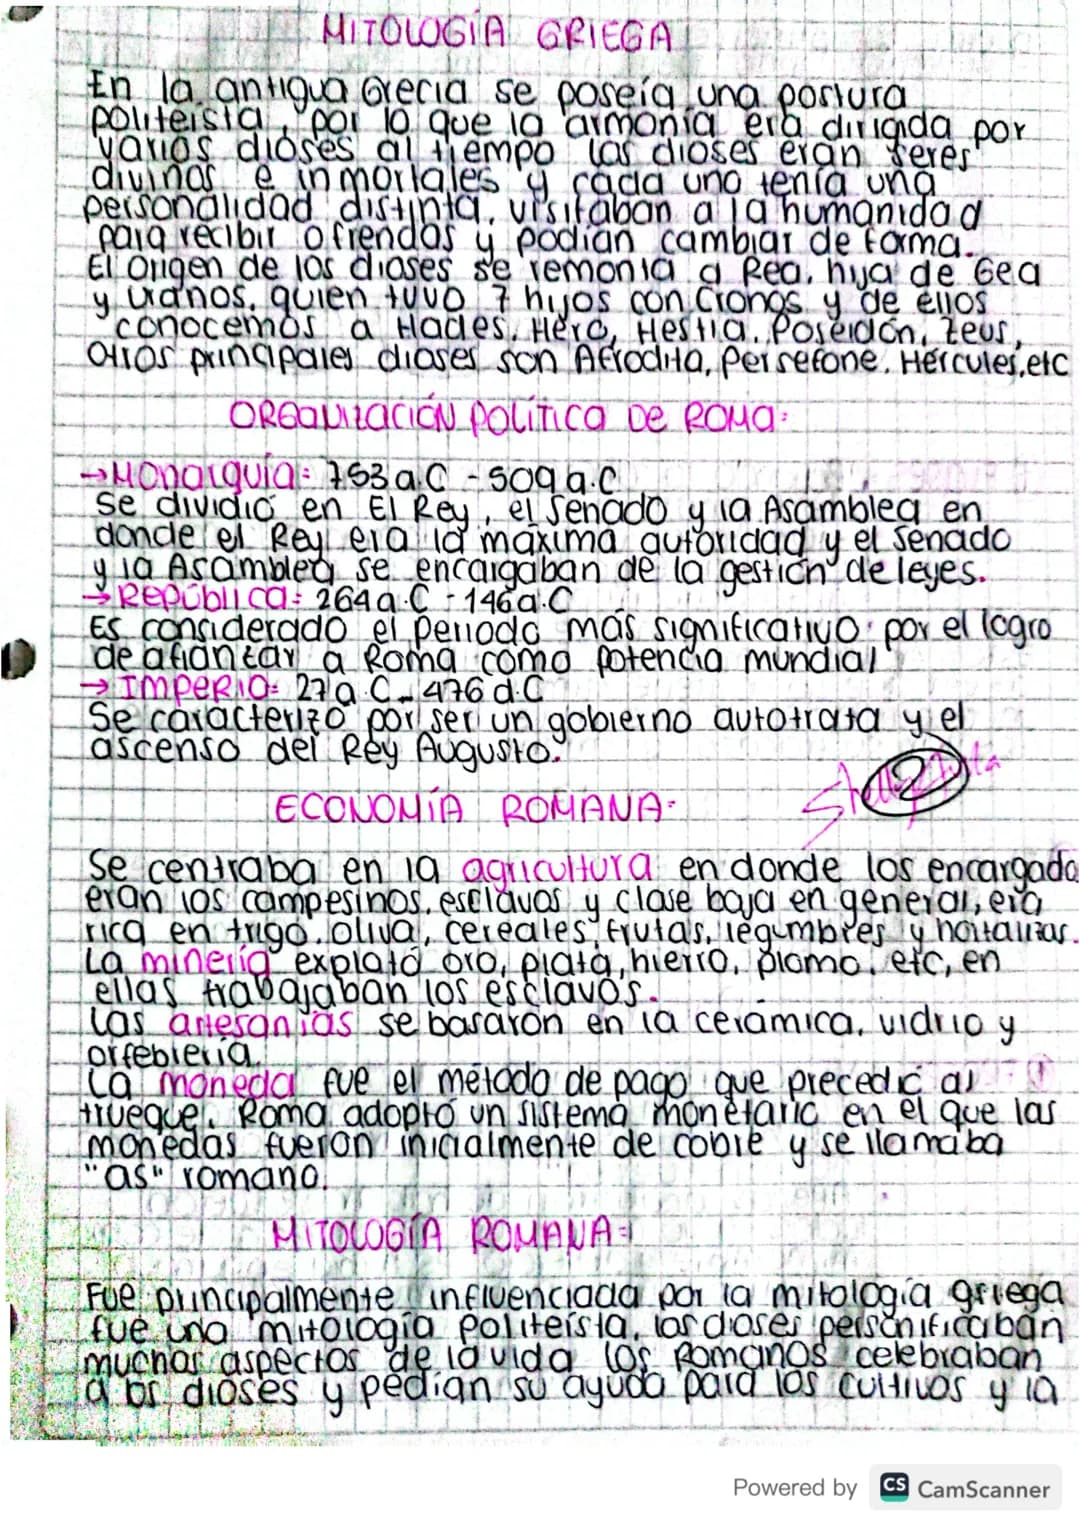 MITOLOGÍA GRIEGA
En la antigua Grecia se poseía una postura
politeista, por lo que la armonía era dirigida por
varios dioses al tiempo los dioses eran seres
divinos e inmortales y cada uno tenía una
personalidad distinta, visitaban a la humanidad
para recibir ofrendas y podían cambiar de forma.
El origen de los dioses se remonta a Rea, hija de Gea
y Uranos, quien tuvo 7 hijos con Cronos y de ellos
conocemos a Hades, Hera, Hestia, Poseidón, Zeus,
Otros principales dioses son Afrodita, Persefone, Hércules, etc
ORGANIZACIÓN POLÍTICA DE ROMA:
→Monarquía: 753 a.C - 509 a.C
Se dividió en El Rey, el Senado y la Asamblea en
donde el Rey era la máxima autoridad y el Senado
y la Asamblea se encargaban de la gestión de leyes.
→República: 264 a.C - 146 a.C
Es considerado el periodo más significativo por el logro
de afianzar a Roma como potencia mundial
→ Imperio: 27 a.C - 476 d.C
Se caracterizó por ser un gobierno autotrata y el
ascenso del Rey Augusto.
2
ECONOMÍA ROMANA:
Se centraba en la agricultura en donde los encargado
eran los campesinos, esclavos y clase baja en general, era
rica en trigo, oliva, cereales, frutas, legumbres y hortalizas.
La minería explotó oro, plata, hierro, plomo, etc, en
ellas trabajaban los esclavos.
Las artesanías se basaron en la cerámica, vidrio y
orfebrería.
La moneda fue el método de pago que precedió al
trueque, Roma adoptó un sistema monetario en el que las
monedas fueron inicialmente de cobre y se llamaba
"as" romano.
MITOLOGÍA ROMANA:
Fue principalmente influenciada por la mitología griega
fue una mitología politeísta, los dioses personificaban
muchos aspectos de la vida los Romanos celebraban
a los dioses y pedían su ayuda para los cultivos y la
Powered by CS CamScanner